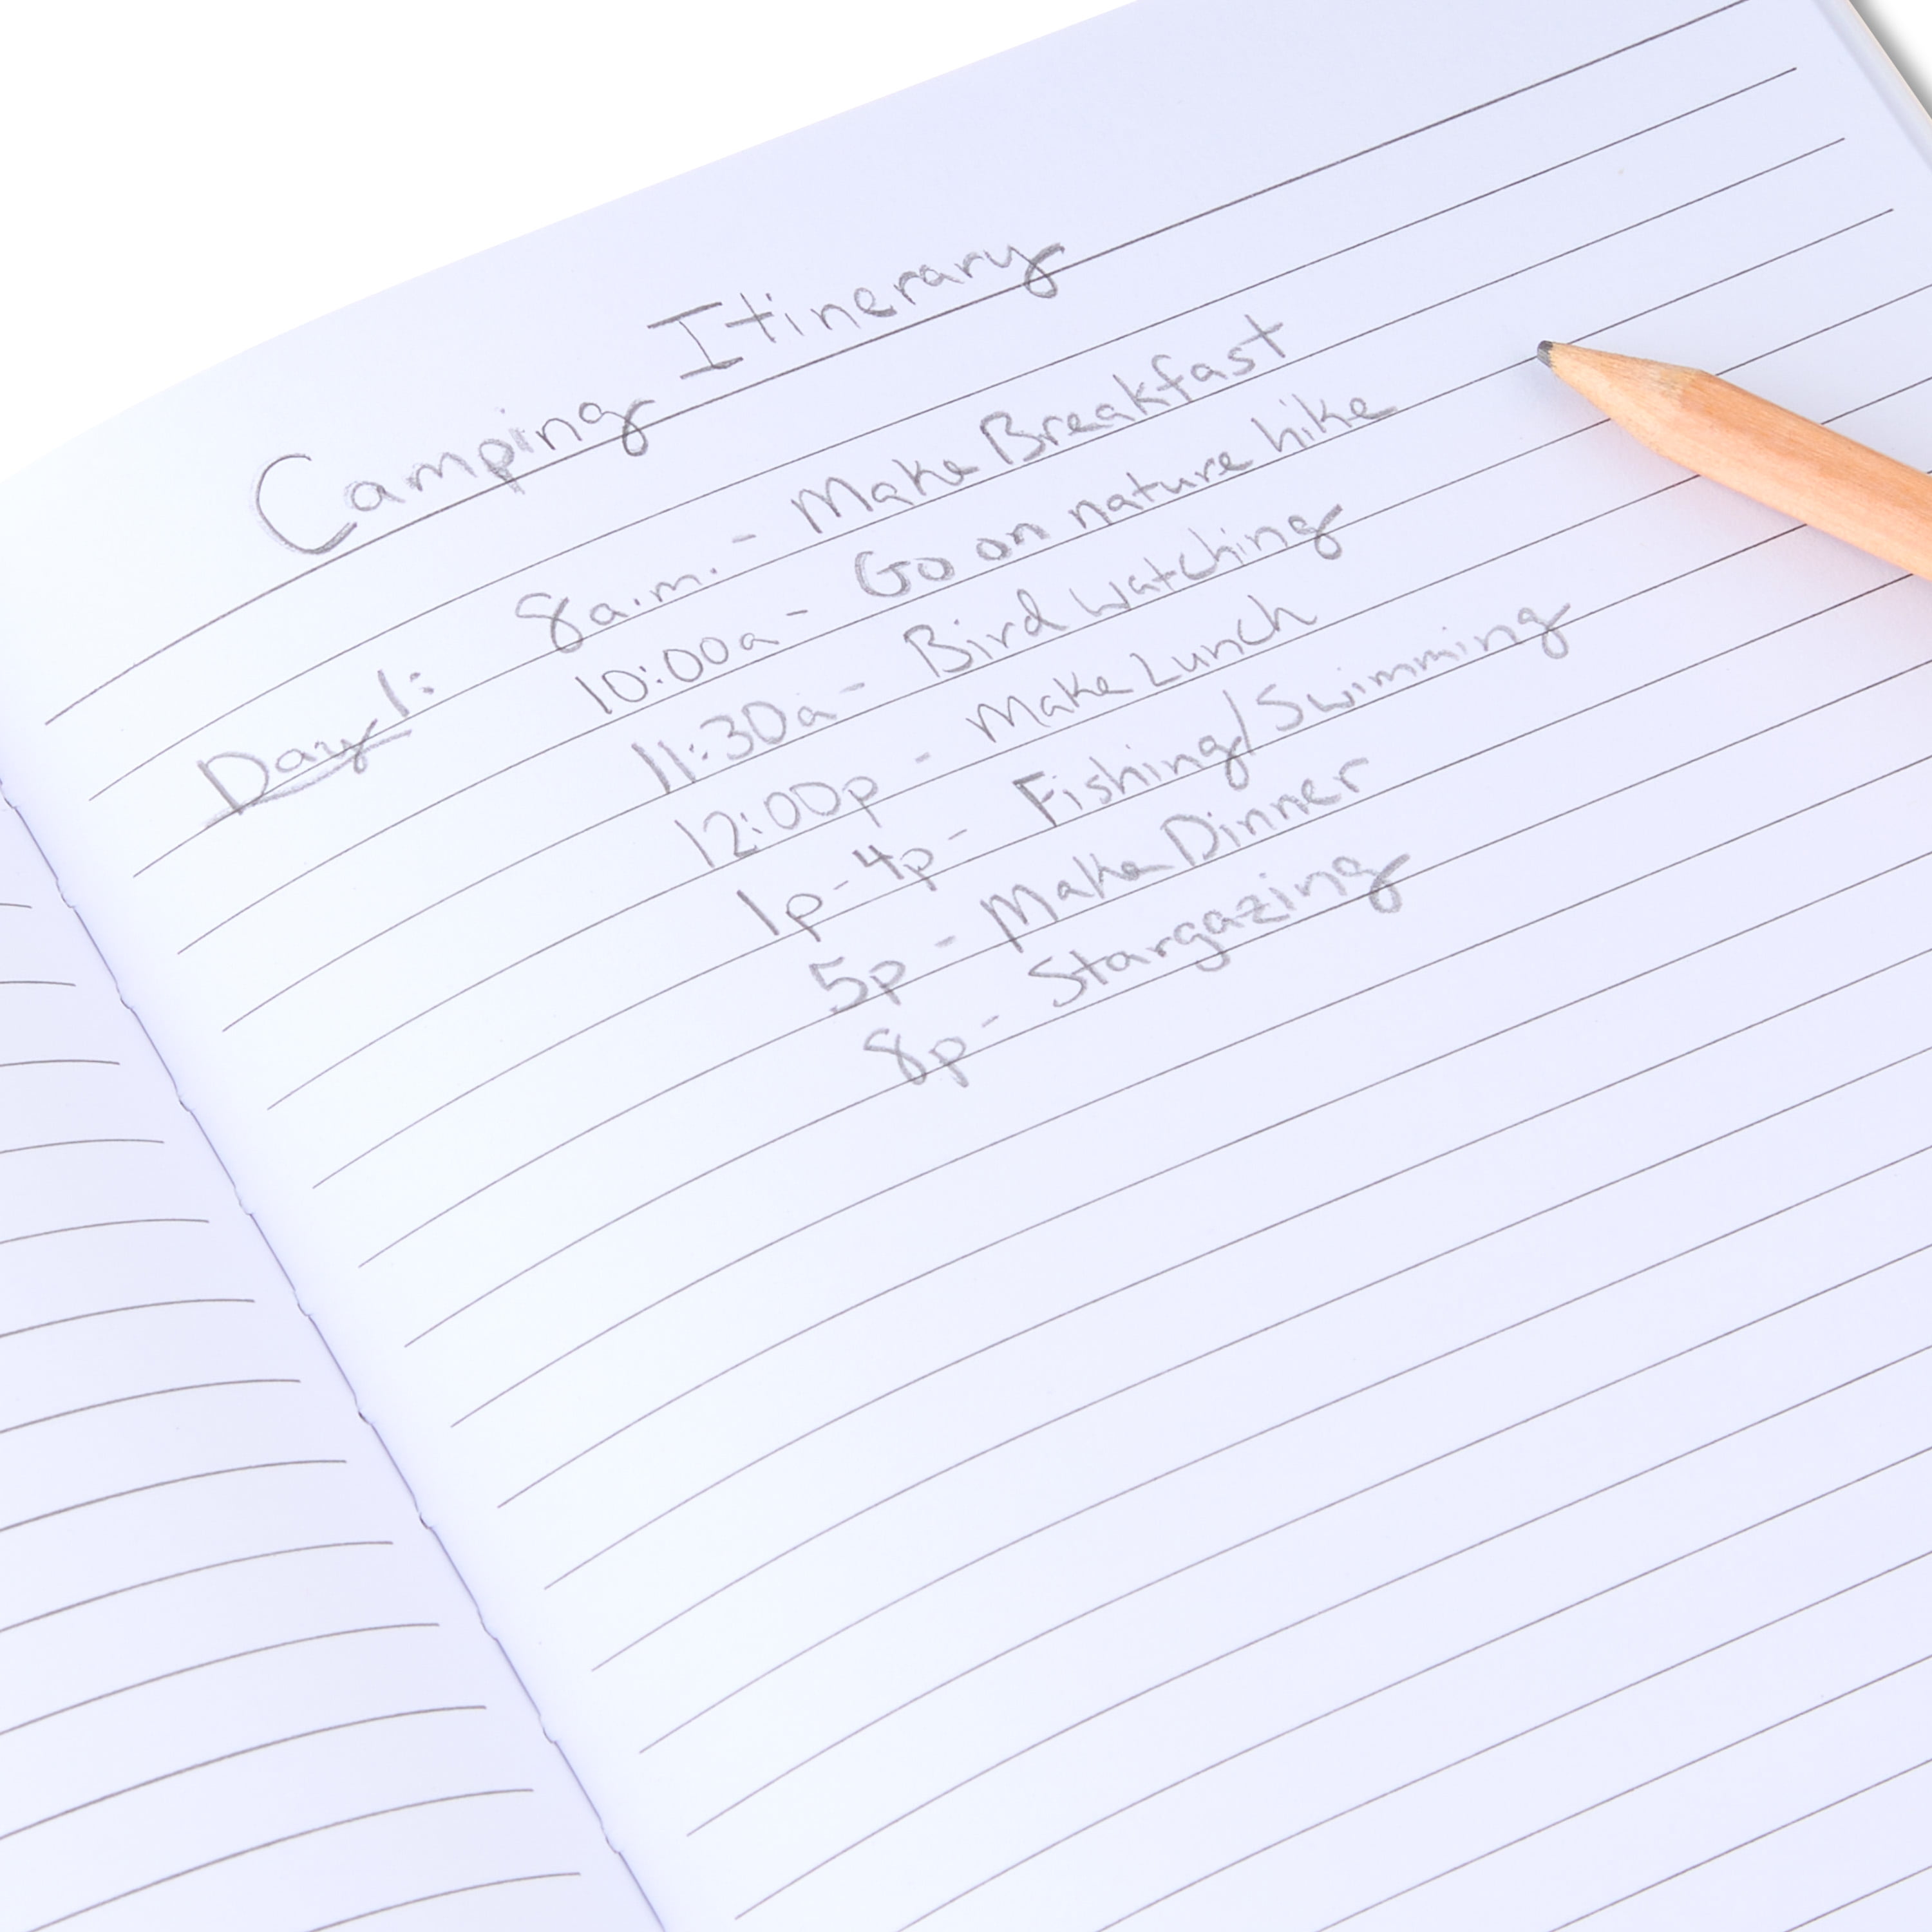 Camping Itinerary
Day 1: 8a.m. - Make Breakfast
10:00a - Go on nature hike
11:30a - Bird watching
12:00p - Make Lunch
1p-4p - Fishing/Swimming
5p - Make Dinner
8p - Stargazing